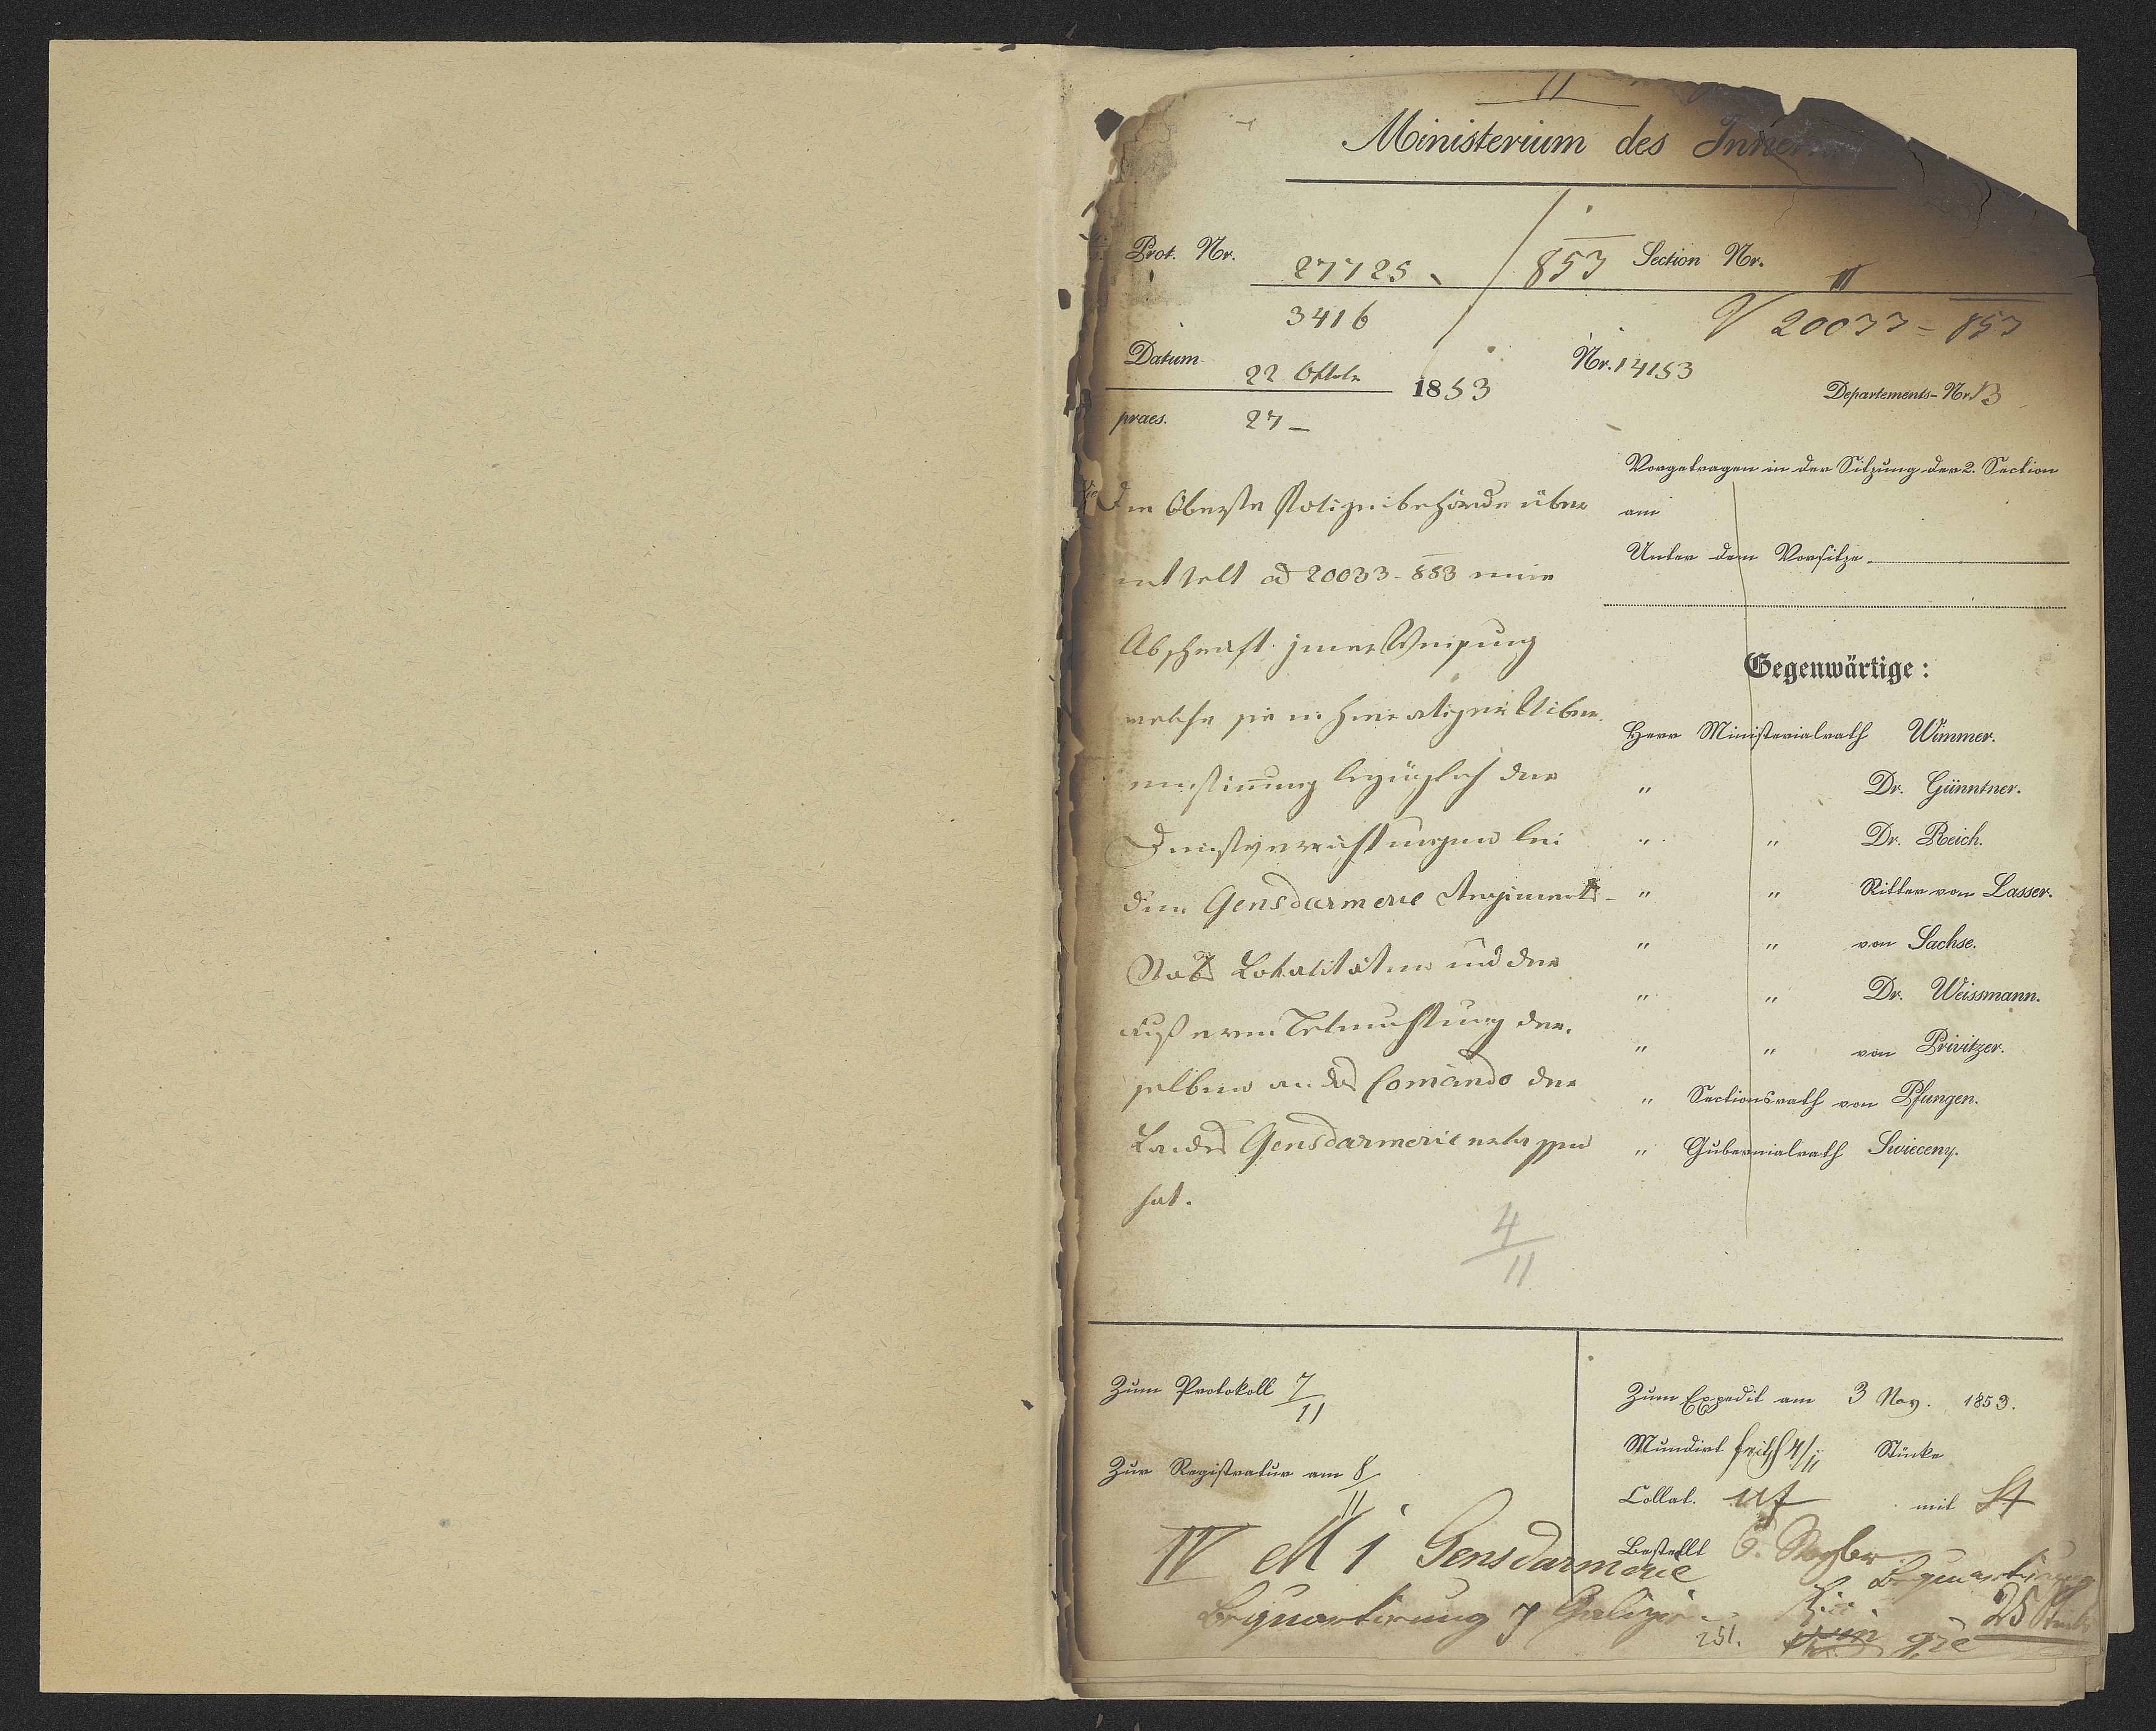 Ministerium des Innern
Prot. Nr. 27725 / 853 Section Nr. III
3416
V 20033 = 853
Datum 22 Oktobr 1853
Nr. 14153
Departements-Nr. 13
praes. 27 –
Vorgetragen in der Sitzung der 2. Section
am
Unter dem Vorsitze
Die Oberste Polizeibehörde über
mittelt ad 20033-853 eine
Abschrift jener Weisung
welche sie in hierortigen Ueber
einstimung bezüglich der
Dienstverrichtungen bei
den Gensdarmerie Regiments-
Stabs Lokalitäten und der
äußeren Beleuchtung der
selben an das Comando der
Landes Gensdarmerie erlassen
hat.
Gegenwärtige:
Herr Ministerialrath Wimmer.
" Dr. Günntner.
" " Dr. Reich.
" " Ritter von Lasser.
" " von Sachse.
" " Dr. Weissmann.
" " von Privitzer.
" Sectionsrath von Pfungen.
" Gubernialrath Swieceny.
4/11
Zum Protokoll 7/11
Zur Registratur am 8/11
Zum Expedit am 3 Nov. 1853.
Mundirt 4/11 Stücke
Collat. mit
Bestellt
IV M 1 Gensdarmerie
Bequartirung
Bequartirung Galizien
251.
25